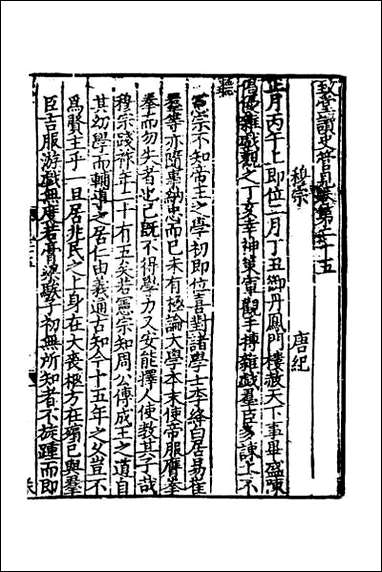 致堂讀史管見卷第二十五
穆宗 唐紀
正月丙午上即位二月丁丑御丹鳳門樓赦天下事畢盛陳
倡優雜戲觀之丁亥幸神策軍觀手搏雜戲羣臣多諫上不
聽
憲宗不知帝王之學初即位喜對諸學士李絳白居易崔
羣等亦隨事納忠而已未有極論大學本末使帝服膺拳
拳而勿失者也己既不得學力又安能擇人使教其子哉
穆宗踐祚年二十有五矣若憲宗知周公傅成王之道自
其幼學而輔導之居仁由義通古知今十五年之久豈不
爲賢主乎一旦居兆民之上身在大喪柩方在殯已與羣
臣吉服游戲無度若膏粱騃子初無所知者不旋踵而即